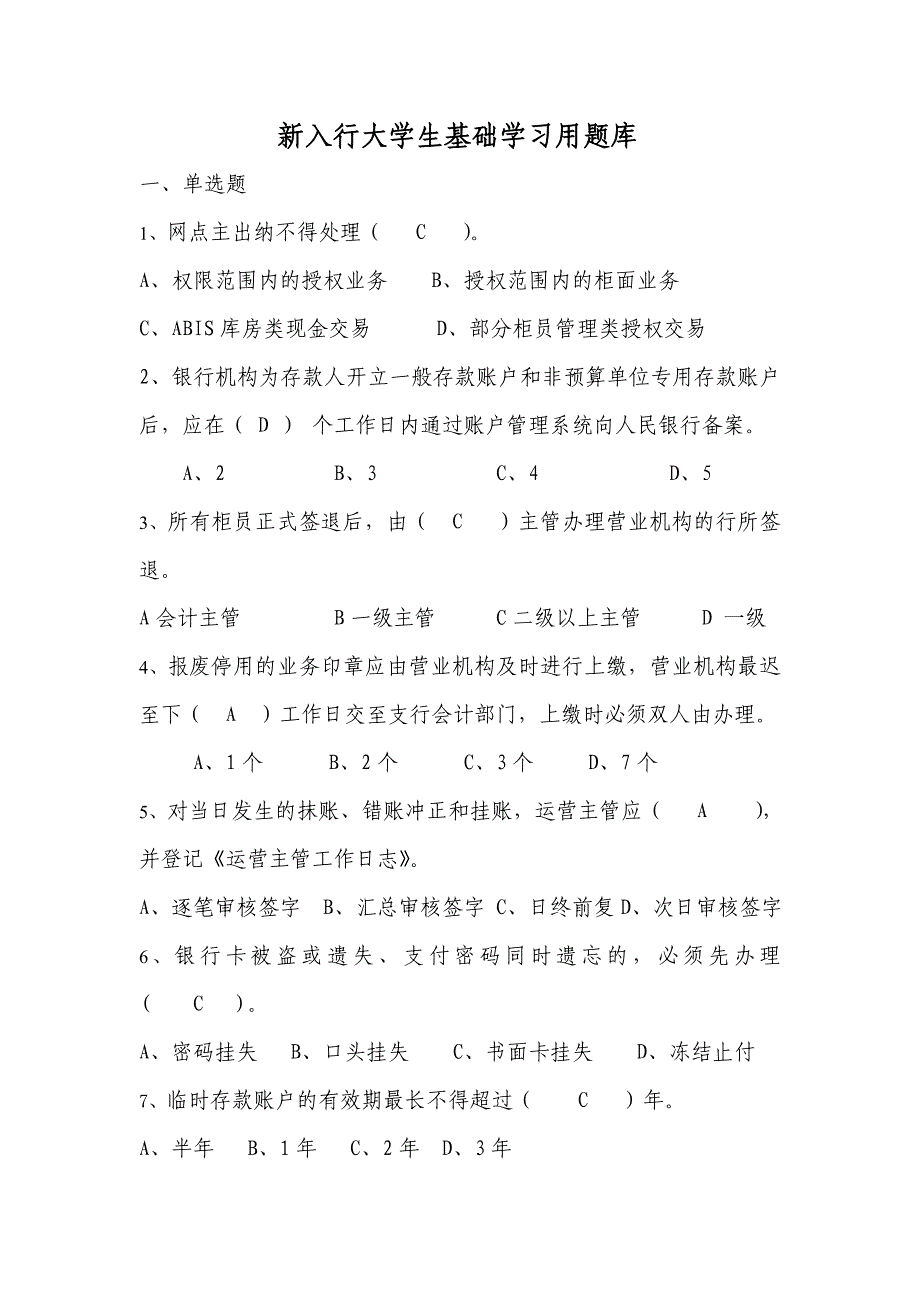 新入行大学生基础学习用题库
一、单选题
1、网点主出纳不得处理（ C ）。
A、权限范围内的授权业务 B、授权范围内的柜面业务
C、ABIS库房类现金交易 D、部分柜员管理类授权交易
2、银行机构为存款人开立一般存款账户和非预算单位专用存款账户
后，应在（ D ） 个工作日内通过账户管理系统向人民银行备案。
A、2 B、3 C、4 D、5
3、所有柜员正式签退后，由（ C ）主管办理营业机构的行所签
退。
A会计主管 B一级主管 C二级以上主管 D 一级
4、报废停用的业务印章应由营业机构及时进行上缴，营业机构最迟
至下（ A ）工作日交至支行会计部门，上缴时必须双人由办理。
A、1个 B、2个 C、3个 D、7个
5、对当日发生的抹账、错账冲正和挂账，运营主管应（ A ），
并登记《运营主管工作日志》。
A、逐笔审核签字 B、汇总审核签字 C、日终前复D、次日审核签字
6、银行卡被盗或遗失、支付密码同时遗忘的，必须先办理
（ C ）。
A、密码挂失 B、口头挂失 C、书面卡挂失 D、冻结止付
7、临时存款账户的有效期最长不得超过（ C ）年。
A、半年 B、1年 C、2年 D、3年